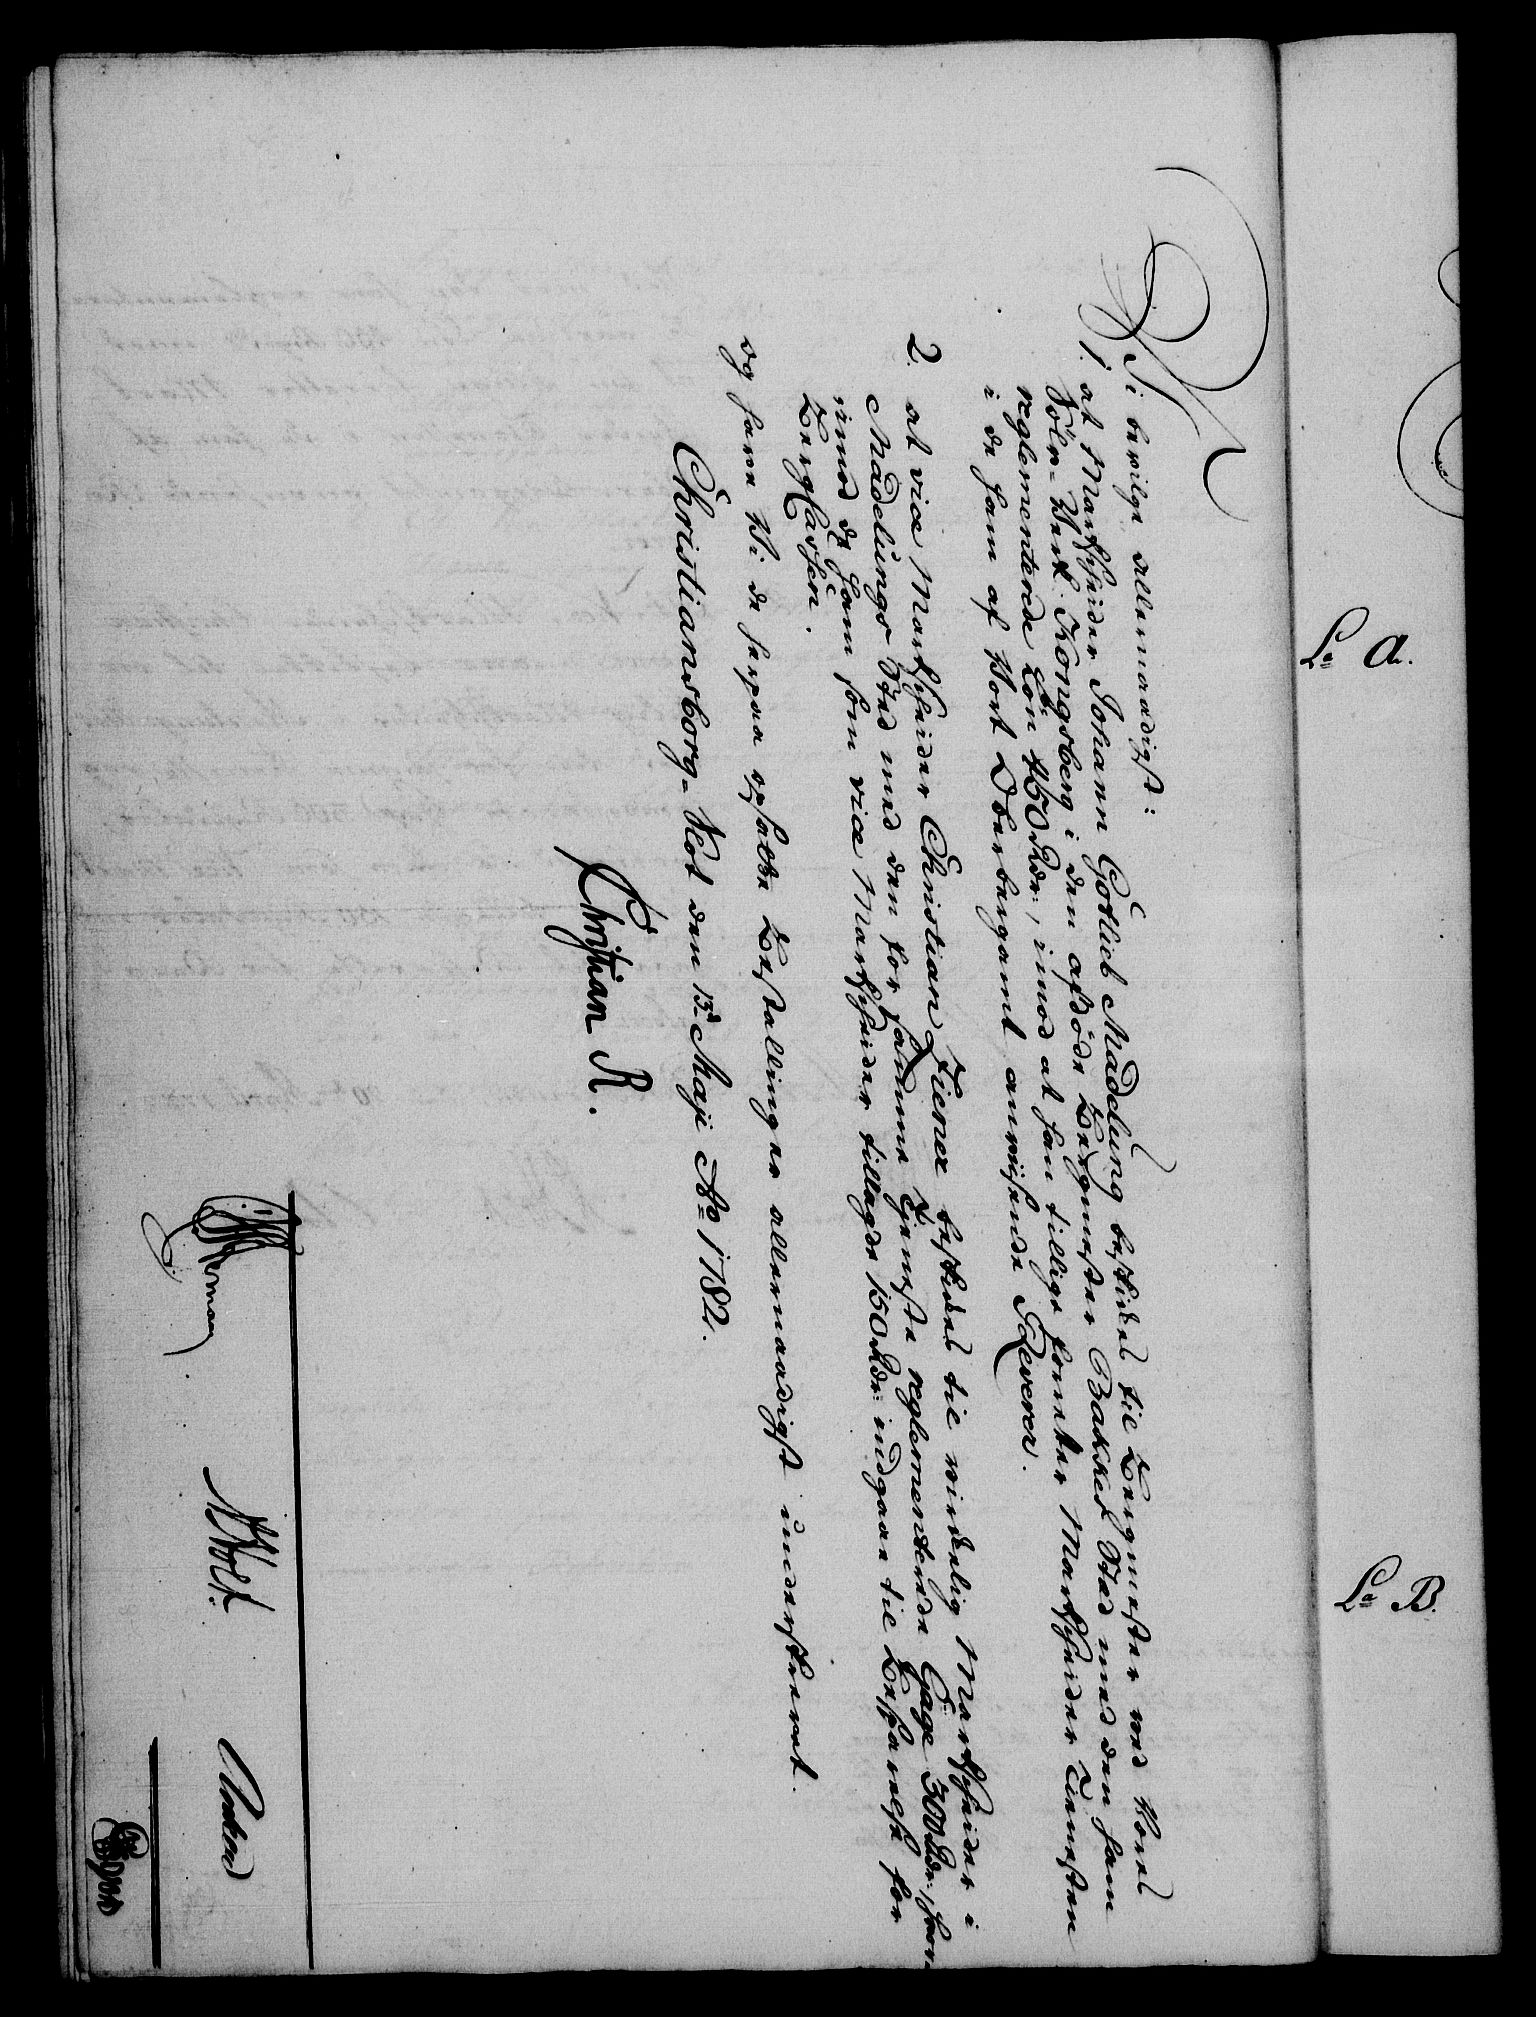 Vi bevilge allernaadigst:
1. at Markscheider Johann Gotlieb Madelung beskikket til Bergmester ved Vores
Sølv-Werk Kongsberg i den afdøde Bergmester Bakkes Sted med den ham
reglementerede Løn 450 Rdr:, imod at han tillige forretter Markscheider Tienesten
i de ham af Vort Oberbergamt anviisende Reverer.
2. at vice Markscheider Christian Ziener beskikkes til virkelig Markscheider i
Madelungs Sted med den for samme Tjeneste reglementerede Gage 300 Rdr:, hvor-
imod de ham som vice Markscheider tillagde 150 Rdr: indgaae til Besparelse for
Berg Cassen.
og have Vi de herpaa opsatte Bestallinger allernaadigst underskrevet.
Christiansborg-Slot den 13de Maji Ao 1782.
Christian R.
La A.
La B.